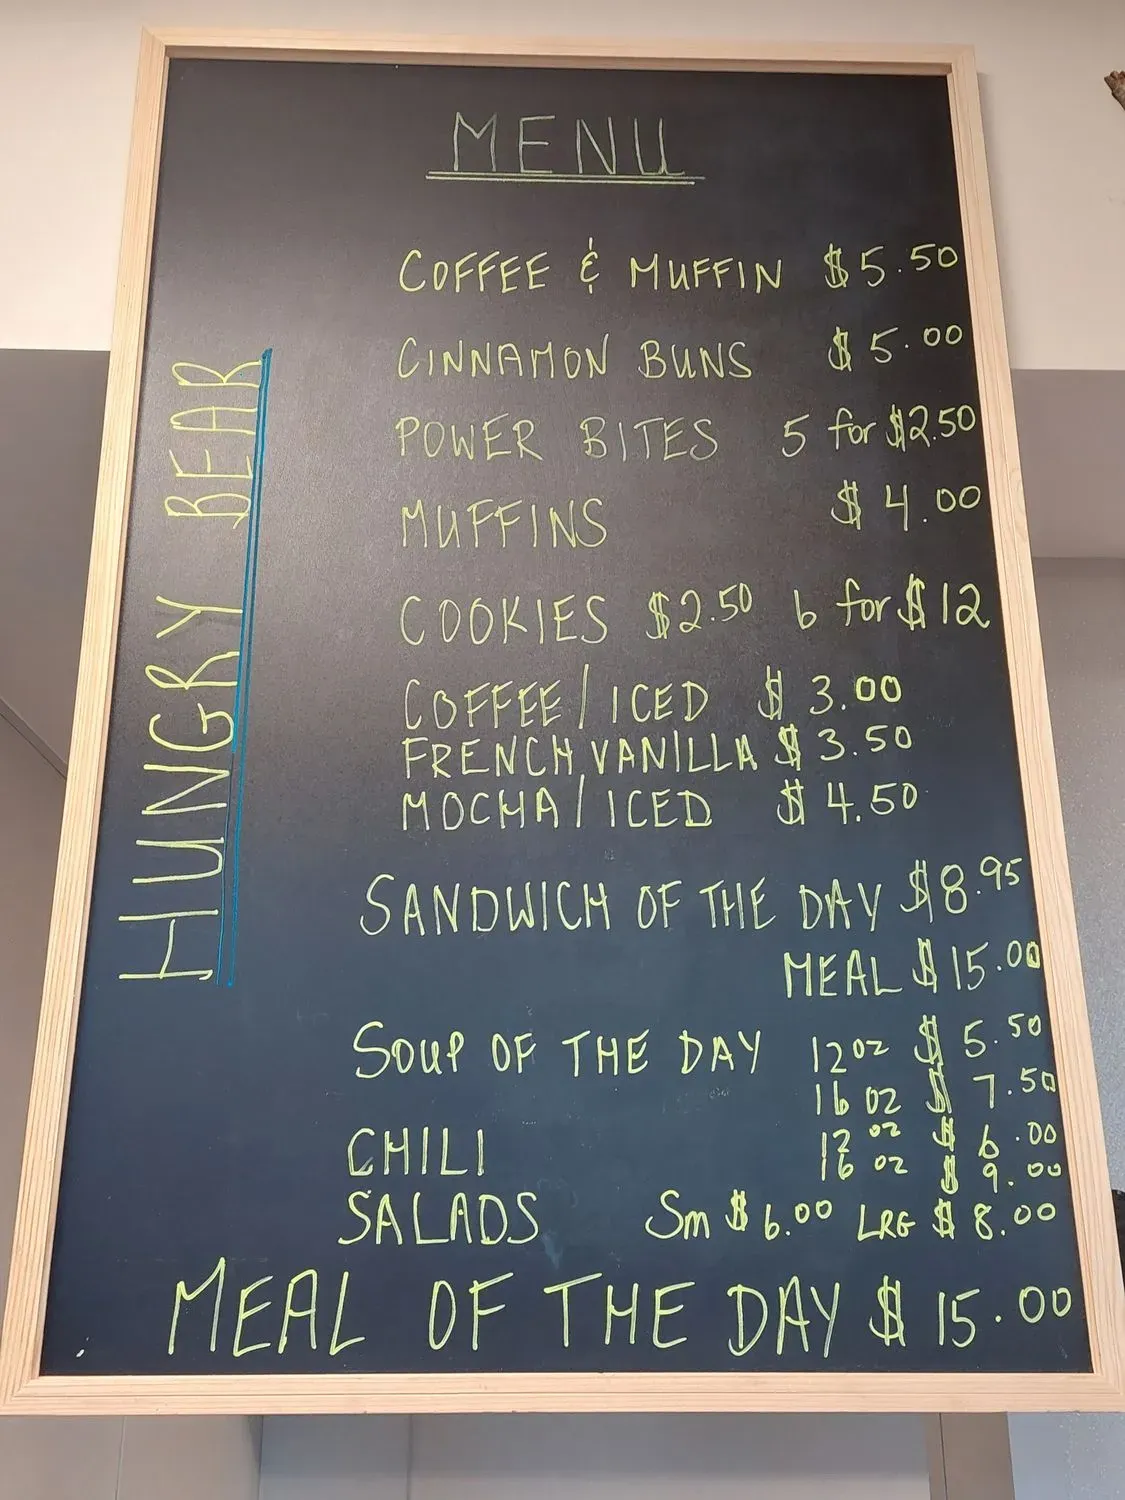 MENU
HUNGRY BEAR
COFFEE & MUFFIN $5.50
CINNAMON BUNS $5.00
POWER BITES 5 for $2.50
MUFFINS $4.00
COOKIES $2.50 6 for $12
COFFEE/ICED $3.00
FRENCH VANILLA $3.50
MOCHA/ICED $4.50
SANDWICH OF THE DAY $8.95
MEAL $15.00
SOUP OF THE DAY 12oz $5.50
16 oz $7.50
CHILI 12 oz $6.00
16 oz $9.00
SALADS Sm $6.00 LRG $8.00
MEAL OF THE DAY $15.00